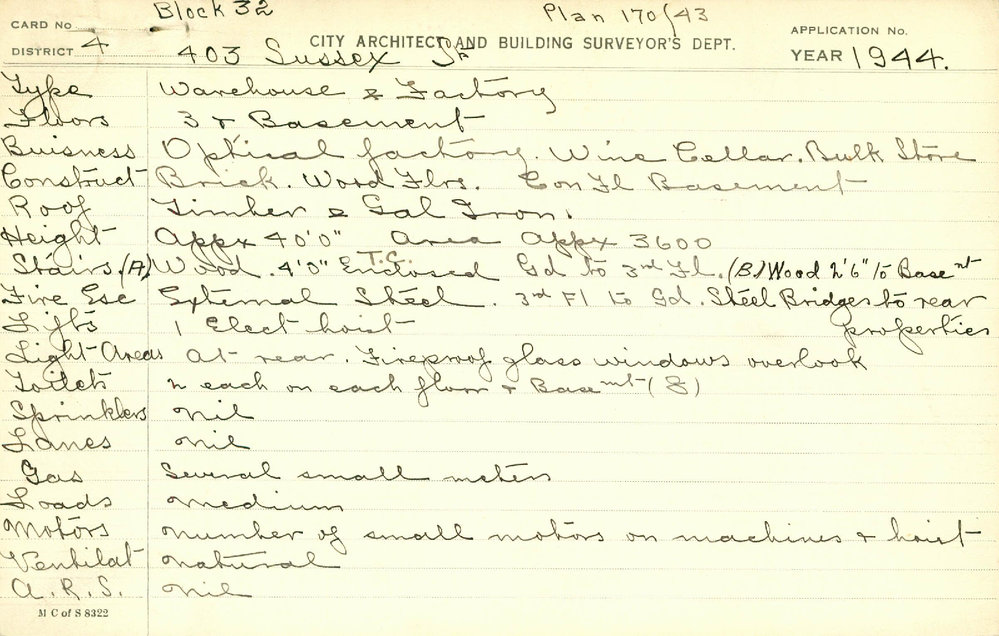 Block 32 Plan 170/43
CARD No
DISTRICT 4 403 Sussex St CITY ARCHITECT AND BUILDING SURVEYOR'S DEPT. APPLICATION No.
YEAR 1944.
Type Warehouse & Factory
Floors 3 + Basement
Buisness Optical factory. Wine Cellar. Bulk Store
Construct Brick. Wood Flrs. Con Fl Basement
Roof Timber & Gal Iron.
Height Appx 40'0" Area Appx 3600
Stairs. (A) Wood. 4'0" T.C. Enclosed Gd to 3rd Fl. (B) Wood 2'6" to Basent
Fire Esc External Steel. 3rd Fl to Gd. Steel Bridges to rear
Lifts 1 Elect hoist properties
Light Areas At rear. Fireproof glass windows overlook
Toilets 2 each on each floor + Basemt (8)
Sprinklers nil
Lanes nil
Gas Several small meters
Loads medium
Motors number of small motors on machines + hoist
Ventilat natural
A.R.S. nil
M C of S 8322